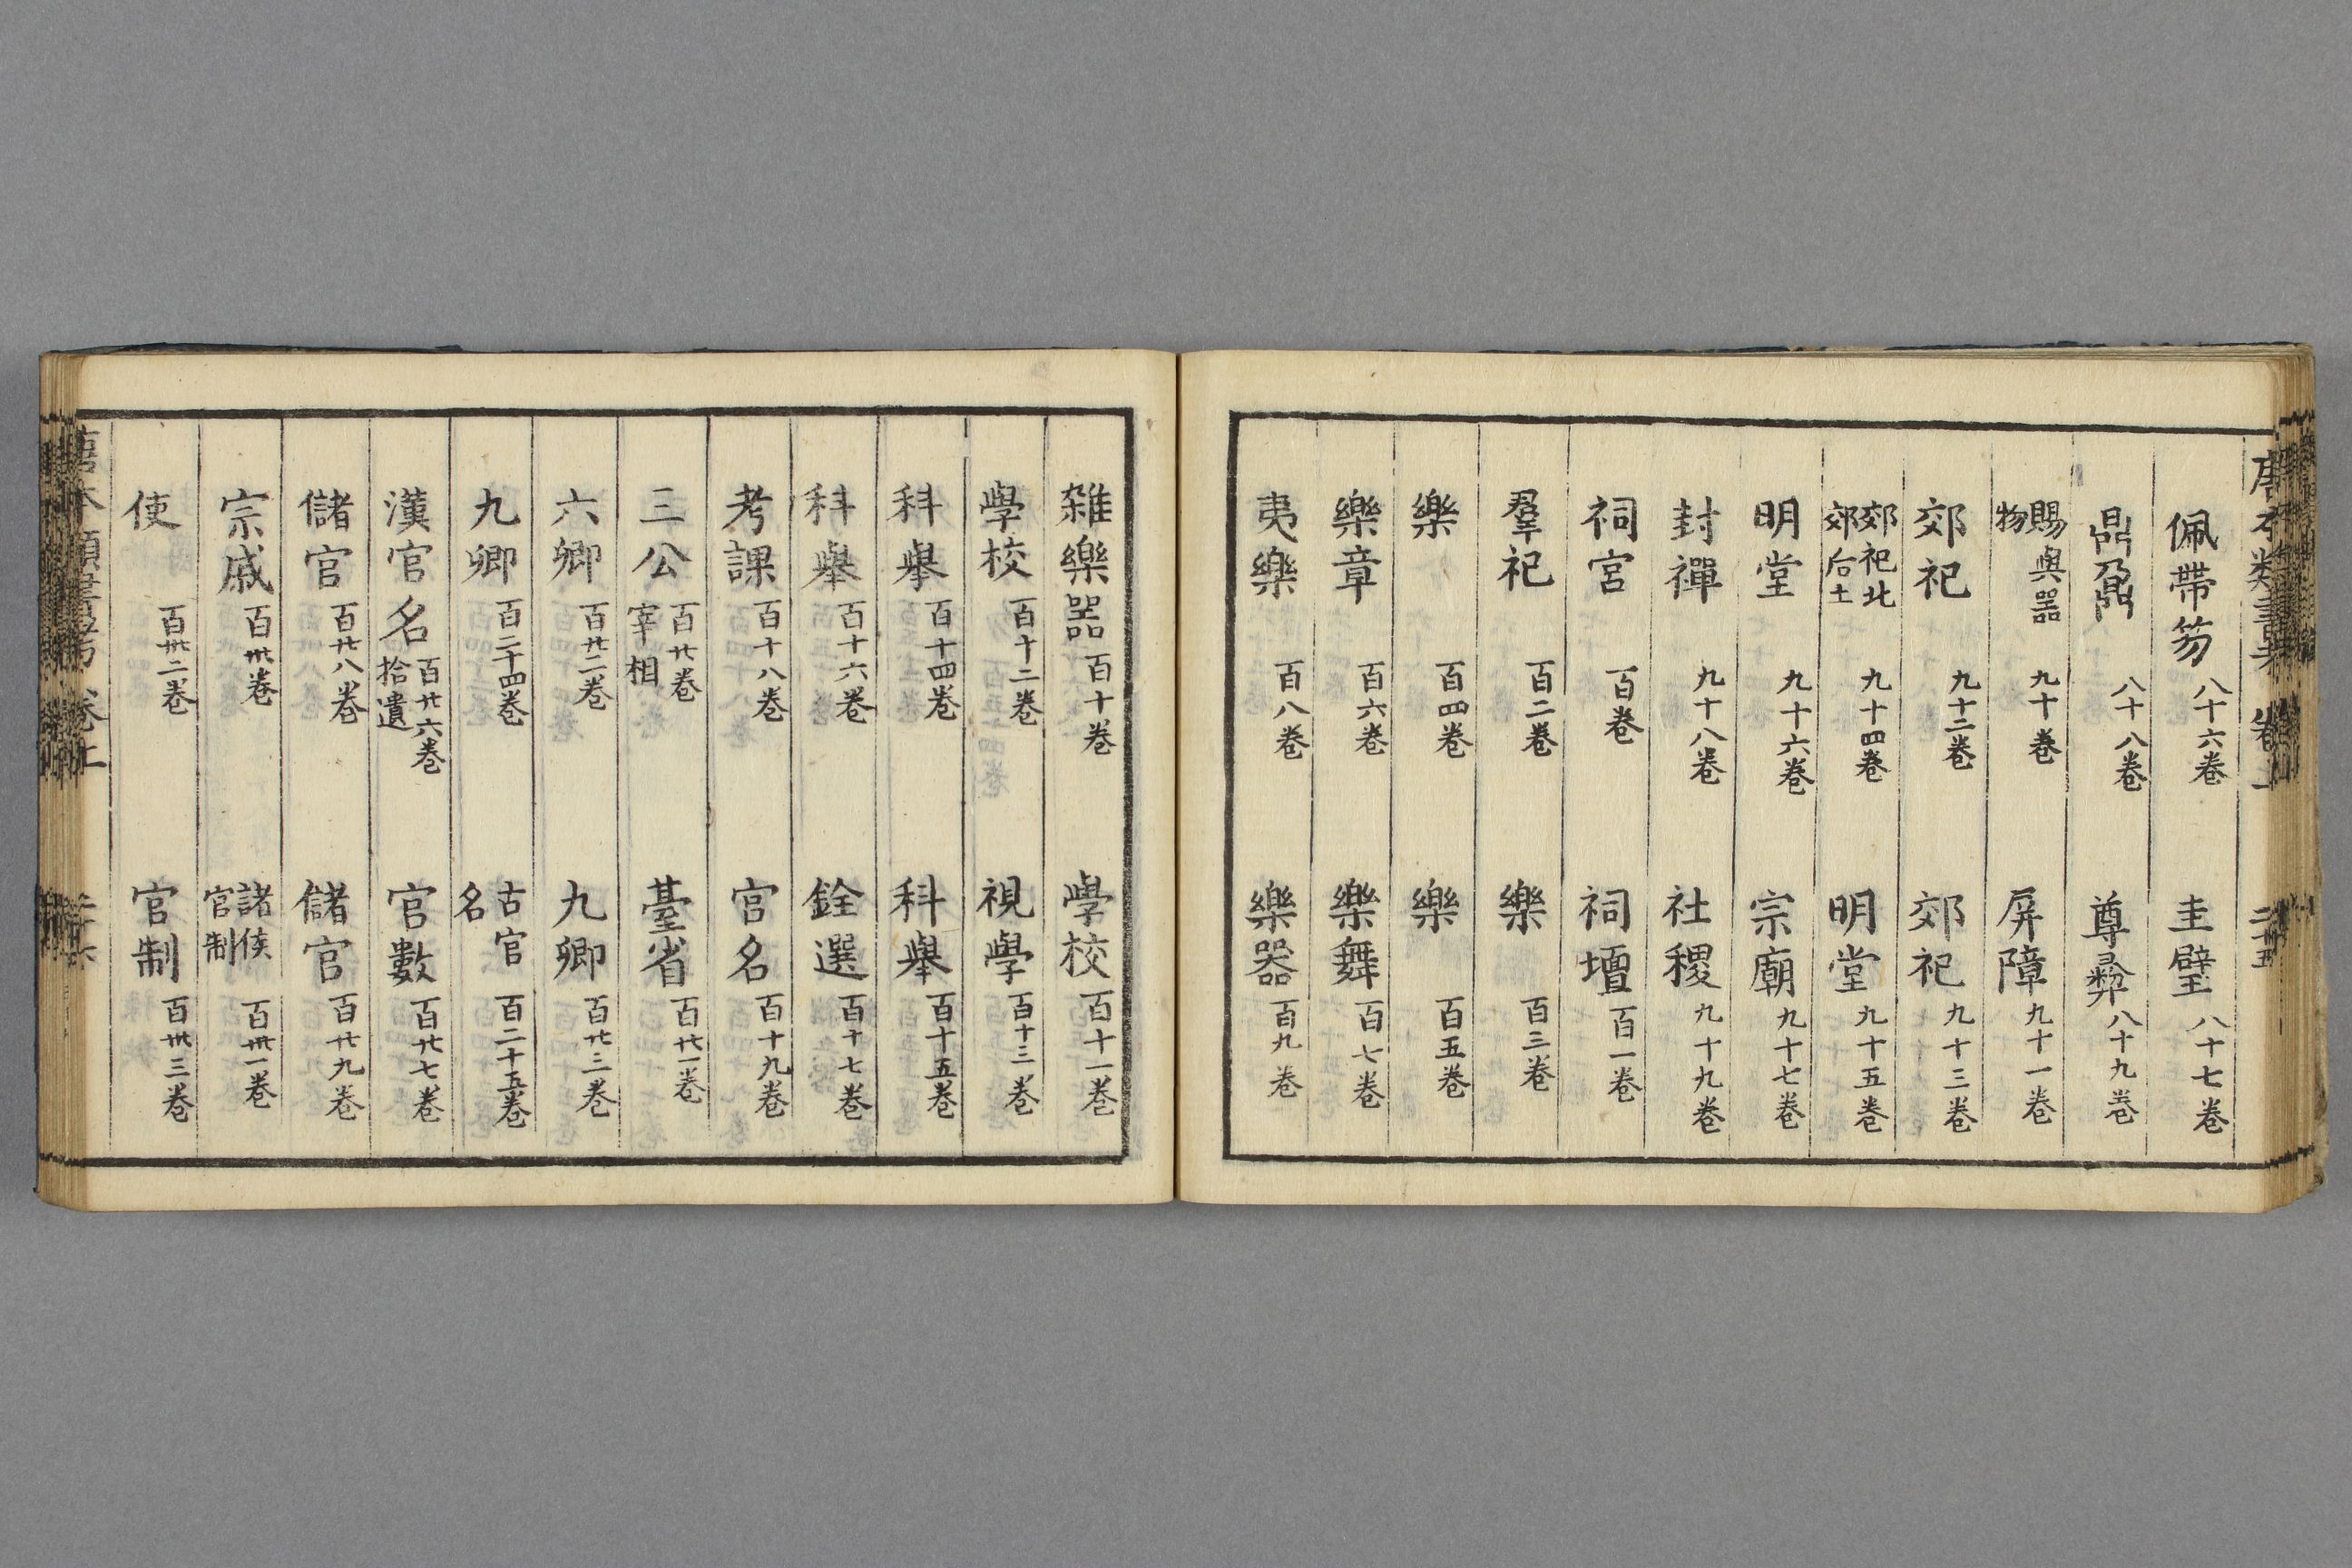 佩帶笏 八十六卷 圭璧 八十七卷
鼎鼐 八十八卷 尊彝 八十九卷
賜與器物 九十卷 屏障 九十一卷
郊祀 九十二卷 郊祀 九十三卷
郊祀北郊后土 九十四卷 明堂 九十五卷
明堂 九十六卷 宗廟 九十七卷
封禪 九十八卷 社稷 九十九卷
祠宮 百卷 祠壇 百一卷
羣祀 百二卷 樂 百三卷
樂 百四卷 樂 百五卷
樂章 百六卷 樂舞 百七卷
夷樂 百八卷 樂器 百九卷
雜樂器 百十卷 學校 百十一卷
學校 百十二卷 視學 百十三卷
科舉 百十四卷 科舉 百十五卷
科舉 百十六卷 銓選 百十七卷
考課 百十八卷 官名 百十九卷
三公 百廿卷宰相 臺省 百廿一卷
六卿 百廿二卷 九卿 百廿三卷
九卿 百二十四卷 古官名 百二十五卷
漢官名 百廿六卷拾遺 官數 百廿七卷
儲官 百廿八卷 儲官 百廿九卷
宗戚 百卅卷 諸侯官制 百卅一卷
使 百卅二卷 官制 百卅三卷